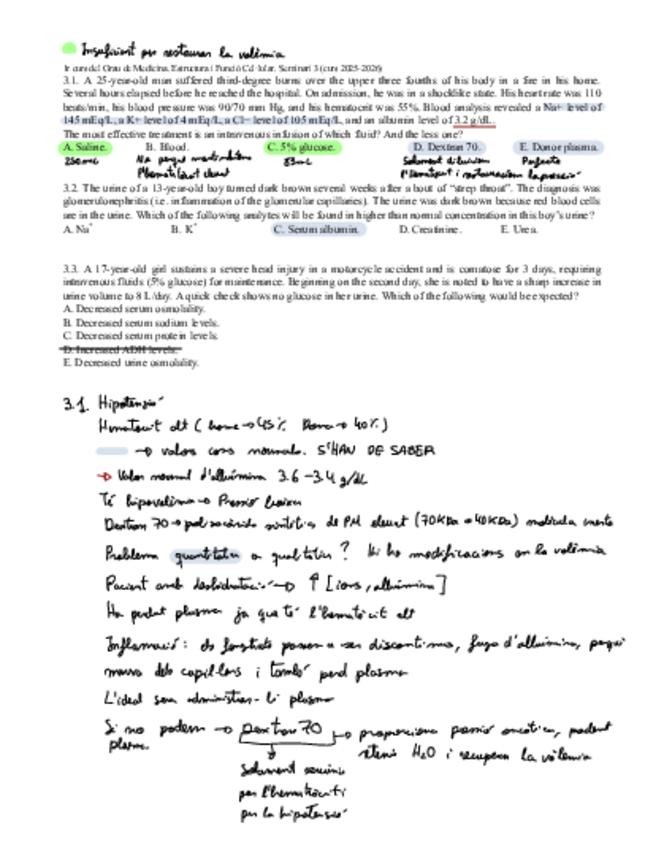 Insuficient per restaurar la volèmia
1r curs del Grau de Medicina. Estructura i Funció Cel·lular. Seminari 3 (curs 2025-2026)
3.1. A 25-year-old man suffered third-degree burns over the upper three fourths of his body in a fire in his home.
Several hours elapsed before he reached the hospital. On admission, he was in a shocklike state. His heart rate was 110
beats/min, his blood pressure was 90/70 mm Hg, and his hematocrit was 55%. Blood analysis revealed a Na+ level of
145 mEq/L, a K+ level of 4 mEq/L, a Cl− level of 105 mEq/L, and an albumin level of 3.2 g/dL.
The most effective treatment is an intravenous infusion of which fluid? And the less one?
A. Saline. B. Blood. C. 5% glucose. D. Dextran 70. E. Donor plasma.
250mL No perquè 83mL Solament Perfecte
l'hematòcrit
3.2. The urine of a 13-year-old boy turned dark brown several weeks after a bout of “strep throat”. The diagnosis was
glomerulonephritis (i.e. inflammation of the glomerular capillaries). The urine was dark brown because red blood cells
are in the urine. Which of the following analytes will be found in higher than normal concentration in this boy's urine?
A. Na+ B. K+ C. Serum albumin. D. Creatinine. E. Urea.
3.3. A 17-year-old girl sustains a severe head injury in a motorcycle accident and is comatose for 3 days, requiring
intravenous fluids (5% glucose) for maintenance. Beginning on the second day, she is noted to have a sharp increase in
urine volume to 8 L/day. A quick check shows no glucose in her urine. Which of the following would be expected?
A. Decreased serum osmolality.
B. Decreased serum sodium levels.
C. Decreased serum protein levels.
D. Increased ADH levels.
E. Decreased urine osmolality.
3.1. Hipotensió
Hematòcrit alt (home → 45% Dona → 40%)
→ valors normals. S'HAN DE SABER
→ Valor normal d'albúmina 3.6 - 3.4 g/dL
Té hipovolèmia → Pressió baixa
Dextran 70 → polisacàrid sintètic de PM elevat (70KDa 40KDa) molècula inerta
Problema quantitatiu o qualitatiu? Hi ha modificacions en la volèmia
Pacient amb deshidratació → ↑ [ions, albúmina]
Ha perdut plasma ja que té l'hematòcrit alt
Inflamació: els passen a ser discontinus, fuga d'albúmina, perquè
dels capil·lars i també perd plasma
L'ideal administrar-li plasma
Si no podem → Dextran 70 → proporciona pressió oncòtica, podent
plasma. H2O i recupera la volèmia
Solament
per l'hematòcrit i
per la hipotensió